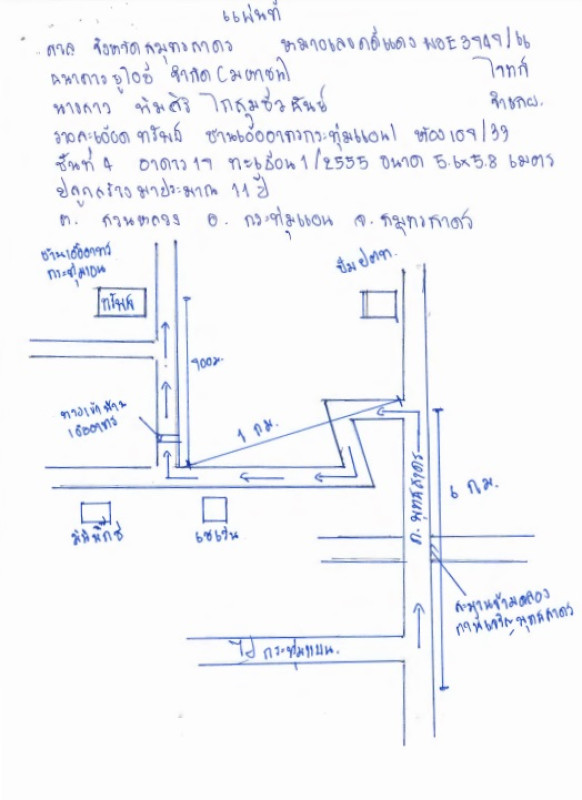 แผนที่
ศาล จังหวัดสมุทรสาคร หมายเลขคดีแดง ผบE3949/66
ธนาคารยูโอบี จำกัด (มหาชน) โจทก์
นางสาว จำเลย.
รายละเอียด ทรัพย์ บ้านเอื้ออาทรกระทุ่มแบน1 ห้อง109/39
ชั้นที่ 4 อาคาร 19 ทะเบียน 1/2555 ขนาด 5.6x5.8 เมตร
ปลูกสร้างมาประมาณ 11 ปี
ต. สวนหลวง อ. กระทุ่มแบน จ. สมุทรสาคร
บ้านเอื้ออาทร
กระทุ่มแบน
ปั๊ม ปตท.
ทรัพย์
900ม.
ทางเข้าบ้าน
เอื้ออาทร
1 กม.
6 กม.
ถ. พุทธสาคร
มินิบิ๊กซี
เซเว่น
สะพานข้ามคลอง
ภาษีเจริญ พุทธสาคร
ไป กระทุ่มแบน.